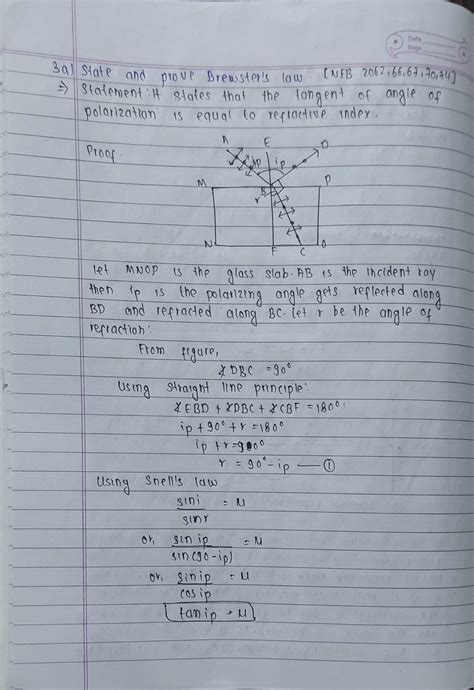 Date
Page
3a) State and prove Brewster's law [NEB 2062,66,67,70,74]
=) Statement: It states that the tangent of angle of
polarization is equal to refractive index.
Proof.
A E D
ip ip
M B P
r
N F C O
let MNOP is the glass slab. AB is the incident ray
then ip is the polarizing angle gets reflected along
BD and refracted along BC. Let r be the angle of
refraction:
From figure,
∠DBC = 90°
Using straight line principle:
∠EBD + ∠DBC + ∠CBF = 180°
ip + 90° + r = 180°
ip + r = 90°
r = 90° - ip — ①
Using Snell's law
sini / sinr = μ
or, sin ip / sin(90 - ip) = μ
or, sin ip / cos ip = μ
tan ip = μ